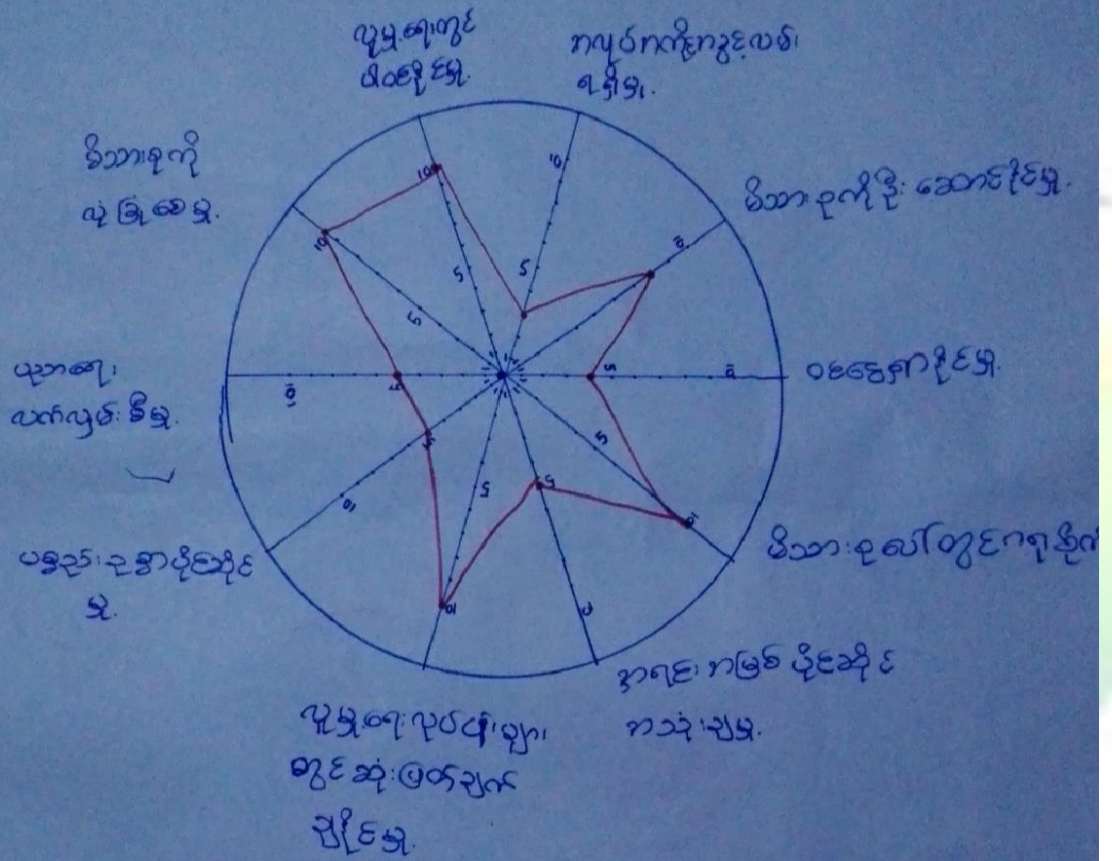 လူမှုရေးတွင်
ပါဝင်နိုင်မှု.
အလုပ်အကိုင်အခွင့်လမ်း
ရရှိမှု.
မိသားစုကိုဦးဆောင်နိုင်မှု.
ဝင်ငွေရှာနိုင်မှု.
မိသားစုပေါ်တွင်ဂရုစိုက်
အရင်းအမြစ်ပိုင်ဆိုင်
အသုံးချမှု.
လူမှုရေးလုပ်ငန်းများ
တွင်ဆုံးဖြတ်ချက်
ချနိုင်မှု.
ပစ္စည်းဥစ္စာပိုင်ဆိုင်
မှု.
ပညာရေး
လက်လှမ်းမီမှု.
မိသားစုကို
လုံခြုံစေမှု.
10
5
10
5
10
5
10
10
5
5
10
5
10
10
5
10
5